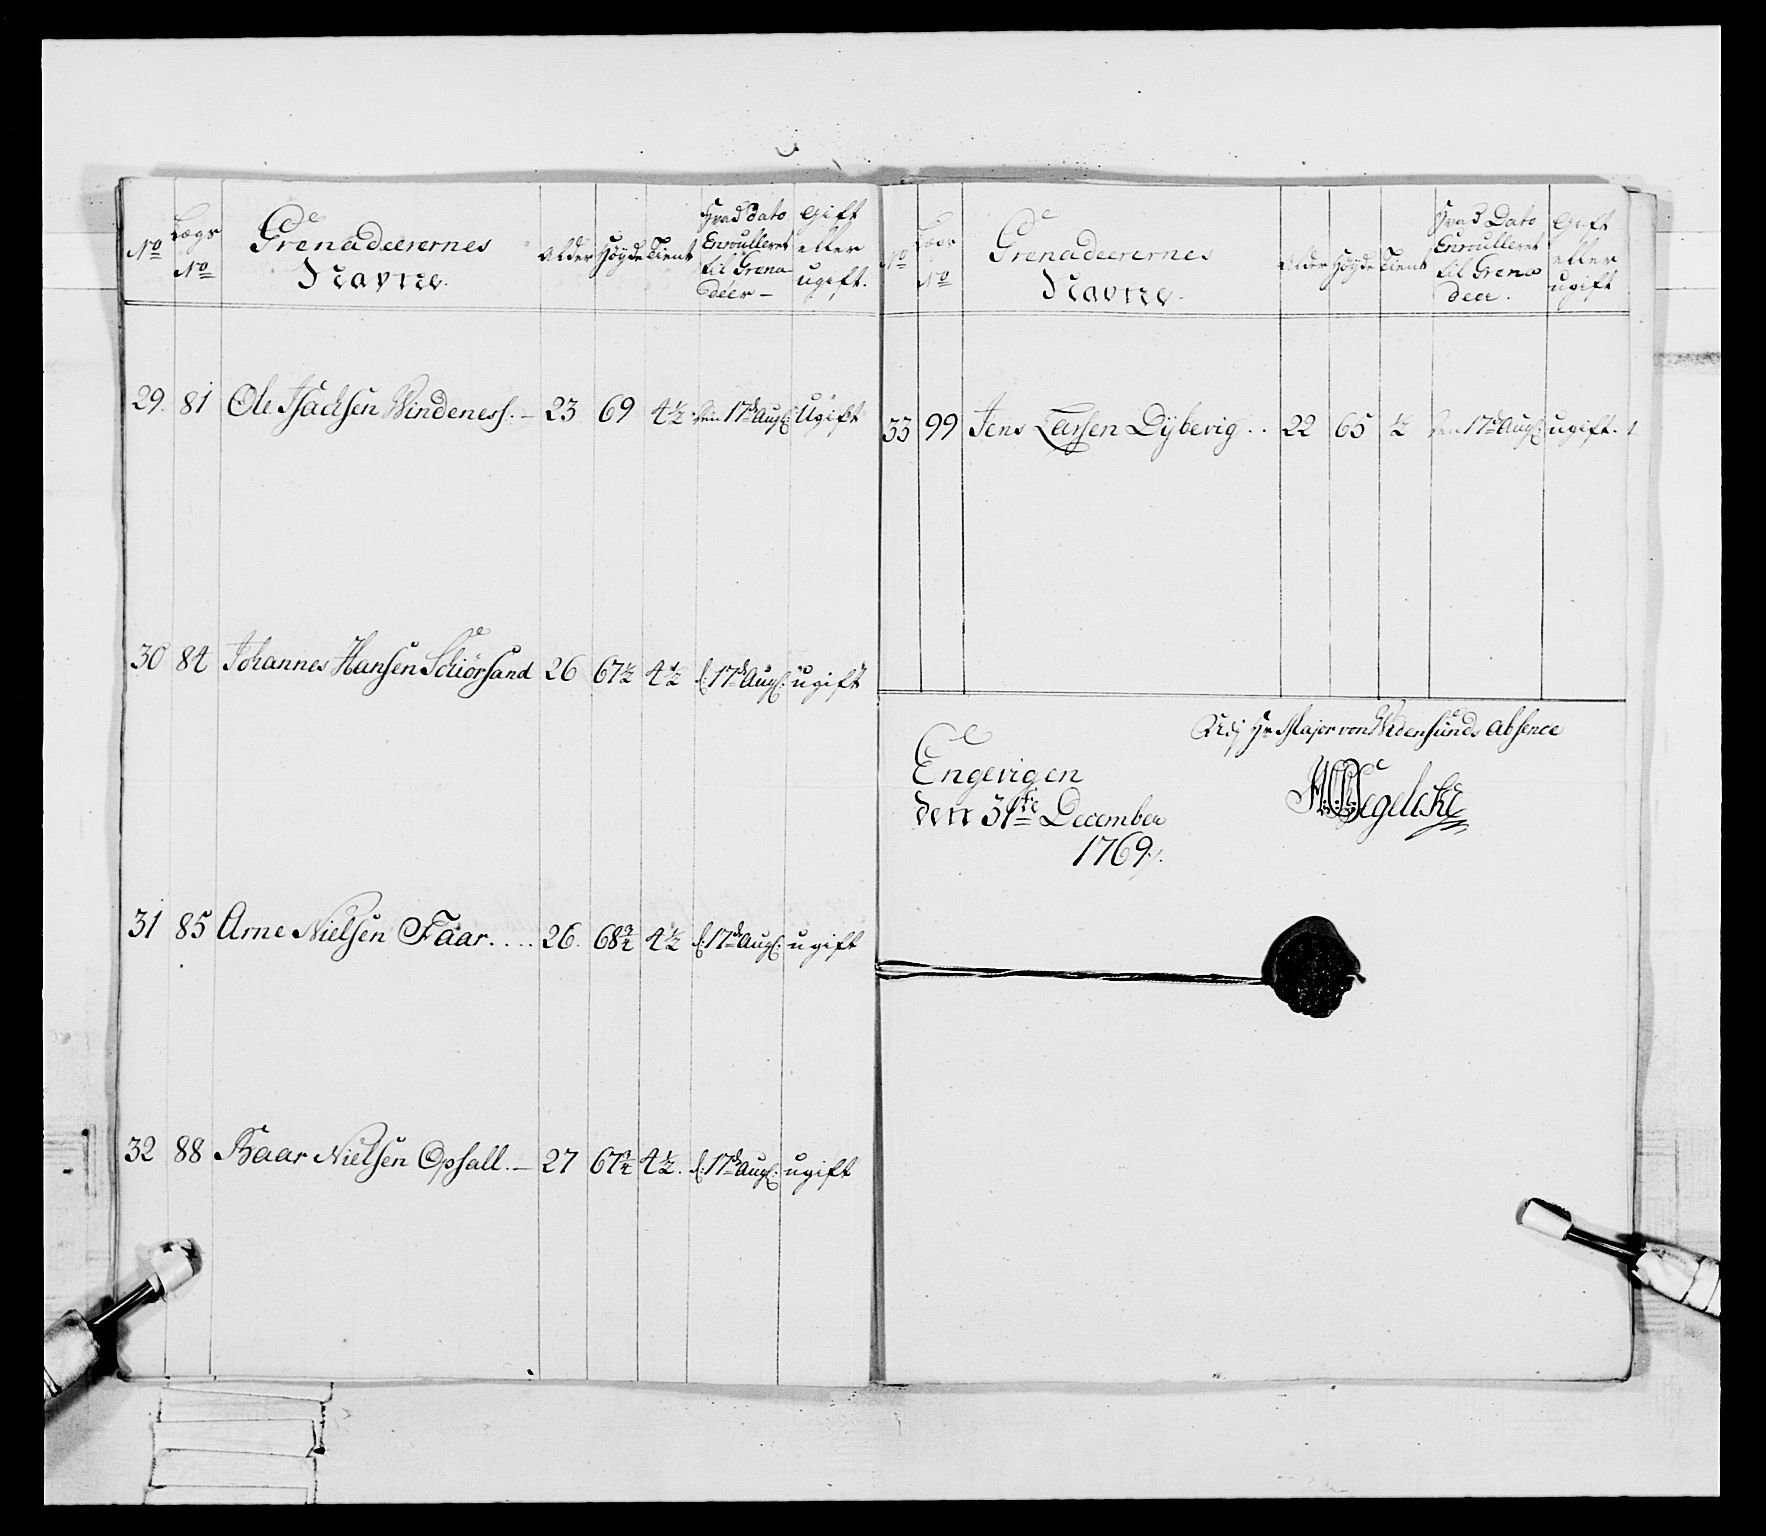 No
Lægs No
Grenadeerernes Navne.
Alder
Høyde
Tient
Hvad dato Enroulleret til Grenadeer –
Gift eller ugift.
29. 81 Ole Isachsen Windeness. – 23 69 4½ den 17de Aug: Ugift
30 84 Johannes Hansen Schiørsand 26 67½ 4½ d: 17de Aug: ugift
31 85 Arne Nielsen Faar.... 26. 68¾ 4½ d: 17de Aug: ugift
32 88 Baar Nielsen Opsall. – 27 67¾ 4½. d: 17de Aug: ugift
No
Lægs No
Grenadeerernes Navne.
Alder
Høyde
Tient
Hvad Dato Enroulleret til Grenadeer.
Gift eller ugift
33 99 Jens Larsen Dybevig.. 22 65 ½ den 17de Aug: ugift.
Engevigen
den 31te December
1769.
Udj Hr Major von Widensunds Absence